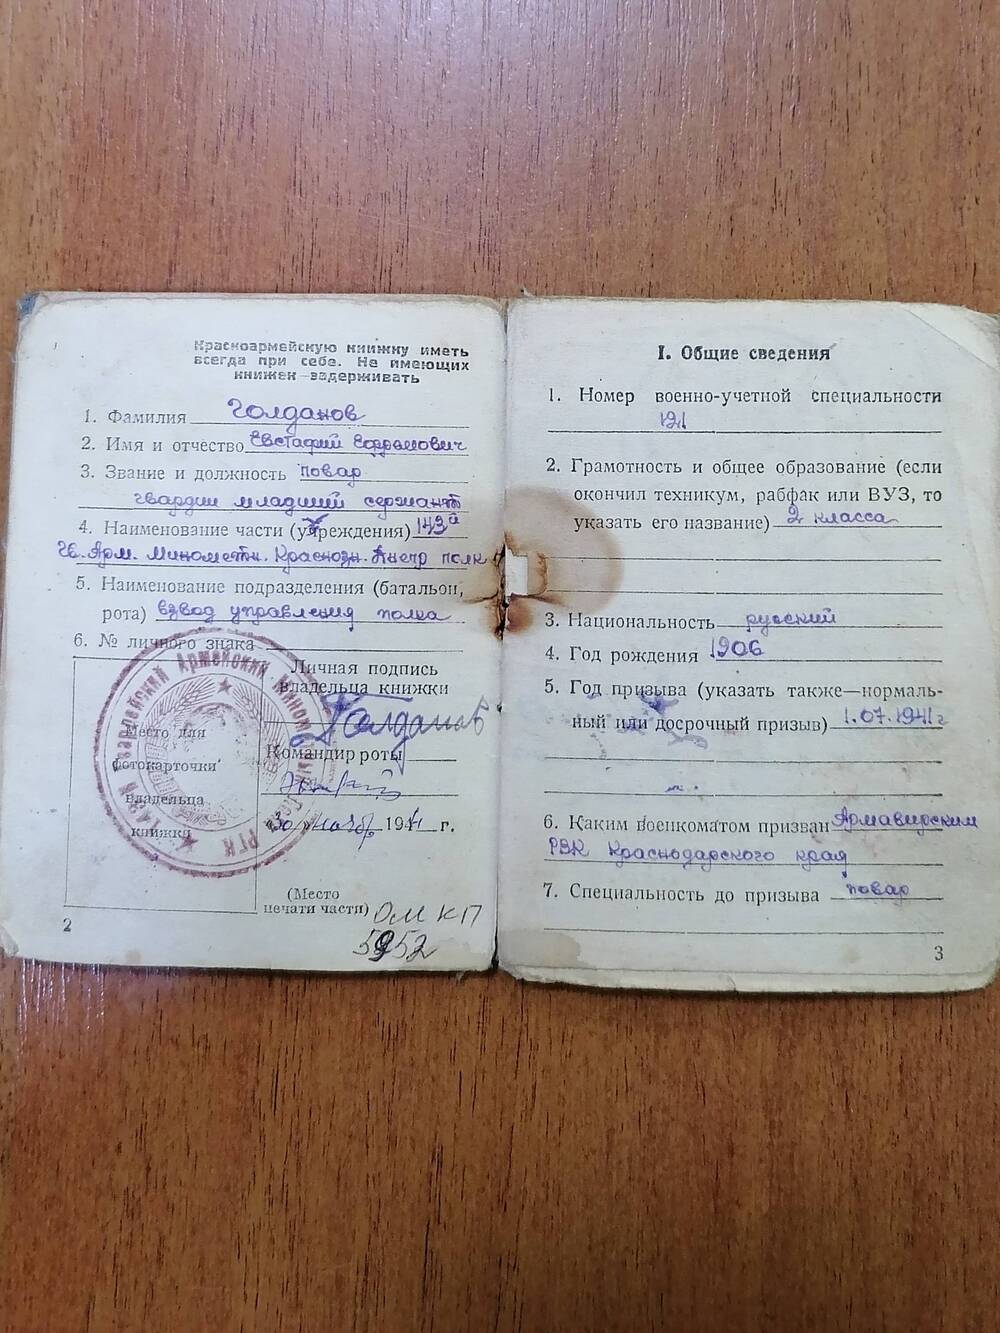 Красноармейскую книжку иметь
всегда при себе. Не имеющих
книжек—задерживать
1. Фамилия Голданов
2. Имя и отчество Евстафий
3. Звание и должность повар
гвардии младший сержант
4. Наименование части (учреждения) 143й
Гв. Арм. Минометн. Краснозн. Днестр полк
5. Наименование подразделения (батальон,
рота) взвод управления полка
6. № личного знака
Личная подпись
владельца книжки
Голданов
Место для
фотокарточки
владельца
книжки
Командир роты
„30“ 194 г.
(Место
печати части)
ОМ КП
5952
2
I. Общие сведения
1. Номер военно-учетной специальности
121
2. Грамотность и общее образование (если
окончил техникум, рабфак или ВУЗ, то
указать его название) 2 класса
3. Национальность русский
4. Год рождения 1906
5. Год призыва (указать также—нормаль-
ный или досрочный призыв) 1.07.1941г
6. Каким военкоматом призван Армавирским
РВК Краснодарского края
7. Специальность до призыва повар
3